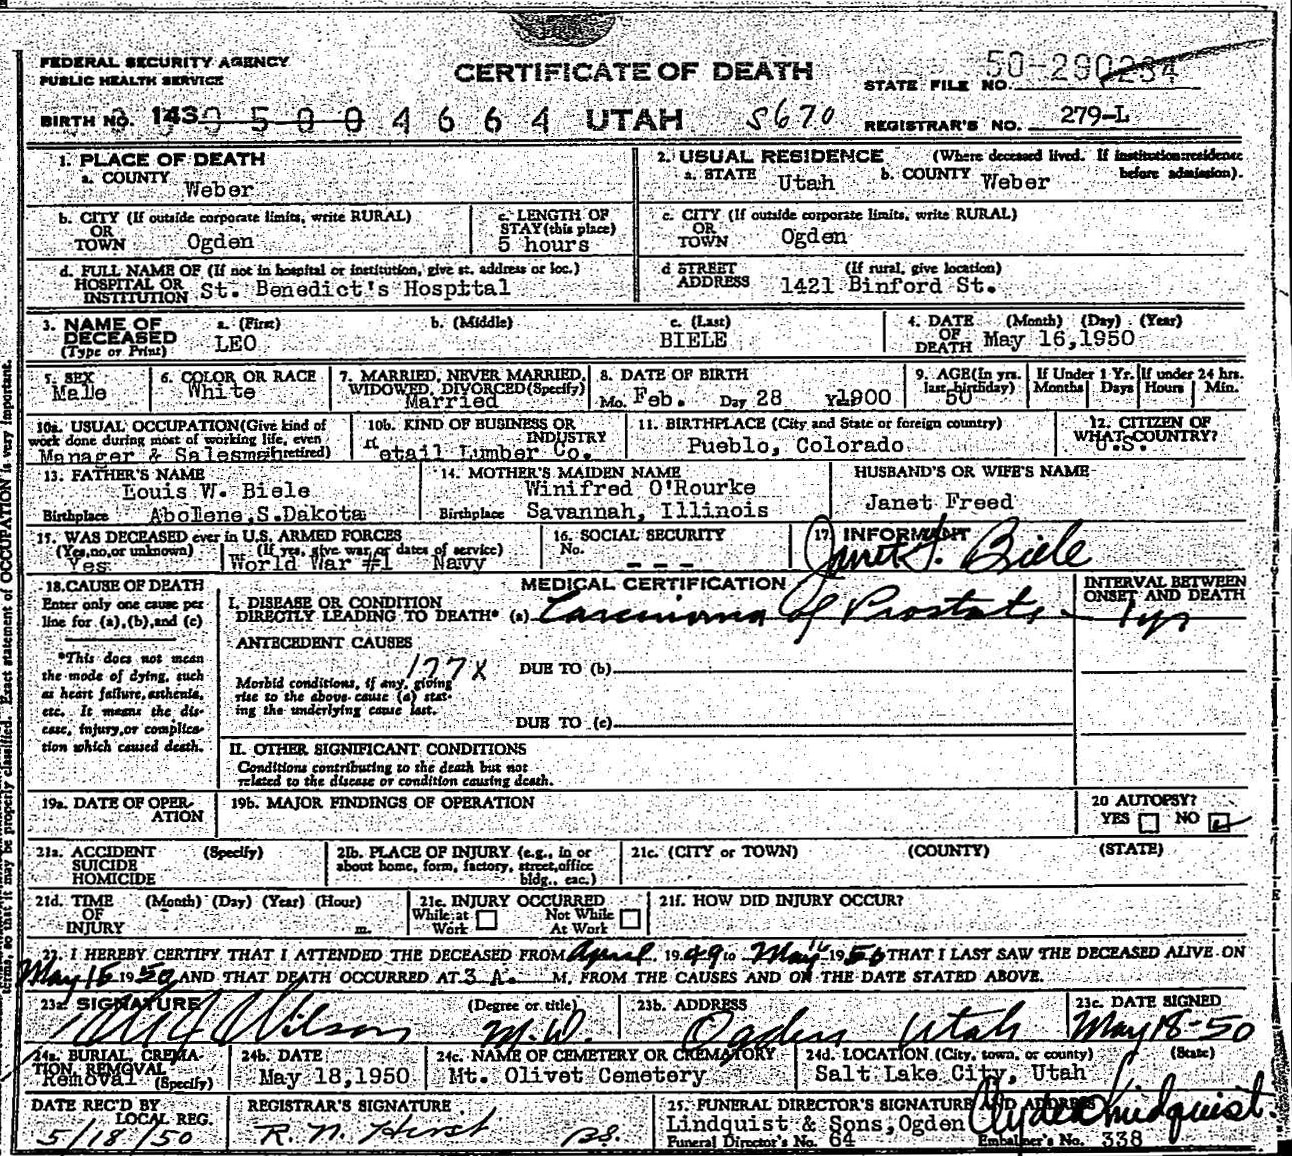 FEDERAL SECURITY AGENCY
PUBLIC HEALTH SERVICE
CERTIFICATE OF DEATH
STATE FILE NO. 50-290234
BIRTH NO. 143 0 5 0 0 4 6 6 4 UTAH 5670
REGISTRAR'S NO. 279-L
1. PLACE OF DEATH
a. COUNTY Weber
2. USUAL RESIDENCE (Where deceased lived. If institution: residence before admission).
a. STATE Utah b. COUNTY Weber
b. CITY (If outside corporate limits, write RURAL)
OR
TOWN Ogden
c. LENGTH OF
STAY (this place)
5 hours
c. CITY (If outside corporate limits, write RURAL)
OR
TOWN Ogden
d. FULL NAME OF (If not in hospital or institution, give st. address or loc.)
HOSPITAL OR
INSTITUTION St. Benedict's Hospital
d STREET (If rural, give location)
ADDRESS 1421 Binford St.
3. NAME OF DECEASED (Type or Print)
a. (First) b. (Middle) c. (Last)
LEO BIELE
4. DATE (Month) (Day) (Year)
OF
DEATH May 16,1950
5. SEX
Male
6. COLOR OR RACE
White
7. MARRIED, NEVER MARRIED,
WIDOWED, DIVORCED (Specify)
Married
8. DATE OF BIRTH
Mo. Feb. Day 28 Yr. 1900
9. AGE (In yrs.
last birthday)
50
If Under 1 Yr. If under 24 hrs.
Months Days Hours Min.
10a. USUAL OCCUPATION (Give kind of
work done during most of working life, even
Manager & Salesman retired)
10b. KIND OF BUSINESS OR
INDUSTRY
etail Lumber Co.
11. BIRTHPLACE (City and State or foreign country)
Pueblo, Colorado
12. CITIZEN OF
WHAT COUNTRY?
U.S.
13. FATHER'S NAME
Louis W. Biele
Birthplace Abolene, S.Dakota
14. MOTHER'S MAIDEN NAME
Winifred O'Rourke
Birthplace Savannah, Illinois
HUSBAND'S OR WIFE'S NAME
Janet Freed
15. WAS DECEASED ever in U.S. ARMED FORCES
(Yes, no, or unknown) (If yes, give war or dates of service)
Yes World War #1 Navy
16. SOCIAL SECURITY
No. - - -
17. INFORMANT
Janet F. Biele
18. CAUSE OF DEATH
Enter only one cause per
line for (a), (b), and (c)
*This does not mean
the mode of dying, such
as heart failure, asthenia,
etc. It means the dis-
ease, injury, or complica-
tion which caused death.
MEDICAL CERTIFICATION
INTERVAL BETWEEN
ONSET AND DEATH
I. DISEASE OR CONDITION
DIRECTLY LEADING TO DEATH* (a) Carcinoma of Prostate - 1 yr
ANTECEDENT CAUSES
177X
DUE TO (b)
Morbid conditions, if any, giving
rise to the above cause (a) stat-
ing the underlying cause last.
DUE TO (c)
II. OTHER SIGNIFICANT CONDITIONS
Conditions contributing to the death but not
related to the disease or condition causing death.
19a. DATE OF OPER-
ATION
19b. MAJOR FINDINGS OF OPERATION
20 AUTOPSY?
YES NO
21a. ACCIDENT (Specify)
SUICIDE
HOMICIDE
21b. PLACE OF INJURY (e.g., in or
about home, farm, factory, street, office
bldg., etc.)
21c. (CITY or TOWN) (COUNTY) (STATE)
21d. TIME (Month) (Day) (Year) (Hour)
OF
INJURY m.
21e. INJURY OCCURRED
While at Work Not While At Work
21f. HOW DID INJURY OCCUR?
22. I HEREBY CERTIFY THAT I ATTENDED THE DECEASED FROM April 1949 to May 16 1950 THAT I LAST SAW THE DECEASED ALIVE ON
May 15 1950 AND THAT DEATH OCCURRED AT 3 A. M. FROM THE CAUSES AND ON THE DATE STATED ABOVE.
23a. SIGNATURE (Degree or title)
Wilson M.D.
23b. ADDRESS
Ogden Utah
23c. DATE SIGNED
May 18-50
24a. BURIAL, CREMA-
TION, REMOVAL
Removal (Specify)
24b. DATE
May 18,1950
24c. NAME OF CEMETERY OR CREMATORY
Mt. Olivet Cemetery
24d. LOCATION (City, town, or county) (State)
Salt Lake City, Utah
DATE REC'D BY
LOCAL REG.
5/18/50
REGISTRAR'S SIGNATURE
R. N. Hirst
25. FUNERAL DIRECTOR'S SIGNATURE AND ADDRESS
Lindquist & Sons, Ogden Clyde Lindquist
Funeral Director's No. 64 Embalmer's No. 338
terms, so that it may be properly classified. Exact statement of OCCUPATION is very important.